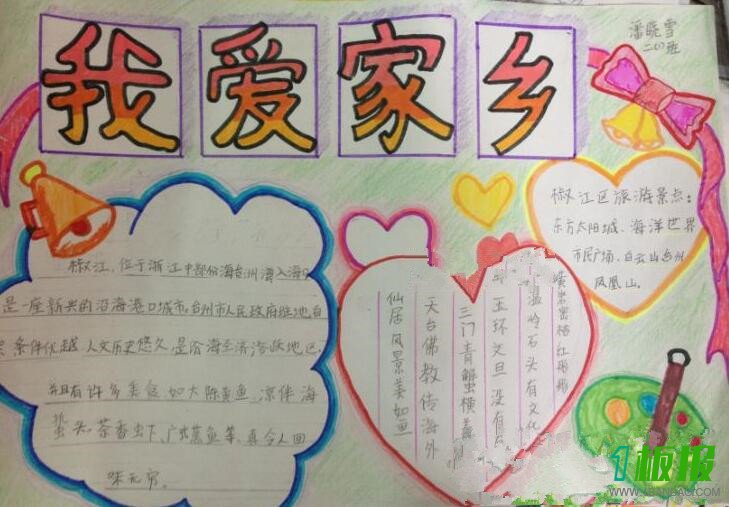 我爱家乡
潘晓雪
二(1)班
椒江区旅游景点:
东方太阳城、海洋世界
市民广场、白云山台州
凤凰山。
椒江,位于浙江中部份海台州湾入海口
是一座新兴的沿海港口城市,台州市人民政府驻地,自
条件优越,人文历史悠久,是沿海经济活跃地区,
并且有许多美食,如大陈黄鱼、凉伴海
蜇头、茶香虫下、广式蒸鱼等,真令人回
味无穷。
蜜桔红彤彤
温岭石头有文化
玉环文旦没有
三门青蟹横着
天台佛教传海外
仙居风景美如鱼
板报
WWW.1BANBAO.COM